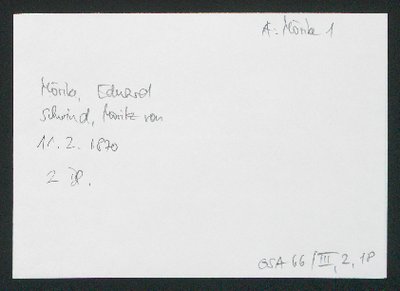 A: Mörike 1
Mörike, Eduard
Schwind, Moritz von
11. 2. 1870
2 Bl.
GSA 66/III, 2, 18